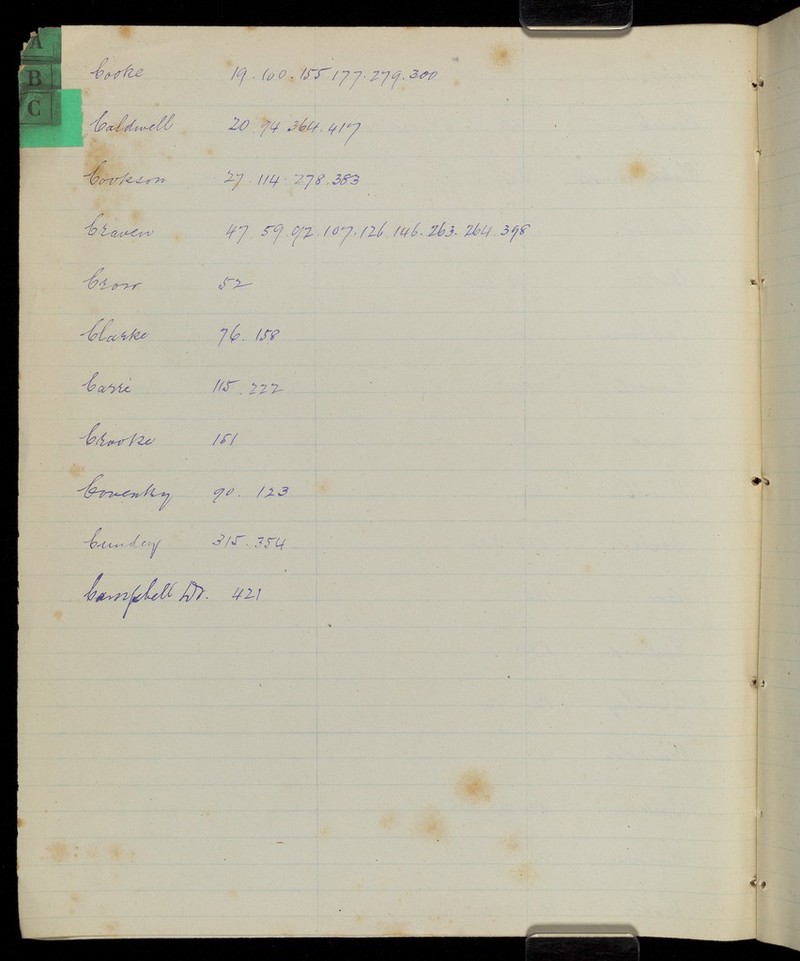 A
B
C
Cooke 19. 100. 155. 177. 279. 300
Caldwell 20. 74. 364. 417
Cookson 27. 114. 278. 383
Craven 47. 59. 92. 107. 126. 146. 263. 264. 398
Crow 52
Clarke 76. 158
Carri 115. 222
Crooke 151
Coventry 90. 123
Cundey 315. 354
Campbell Dr. 421